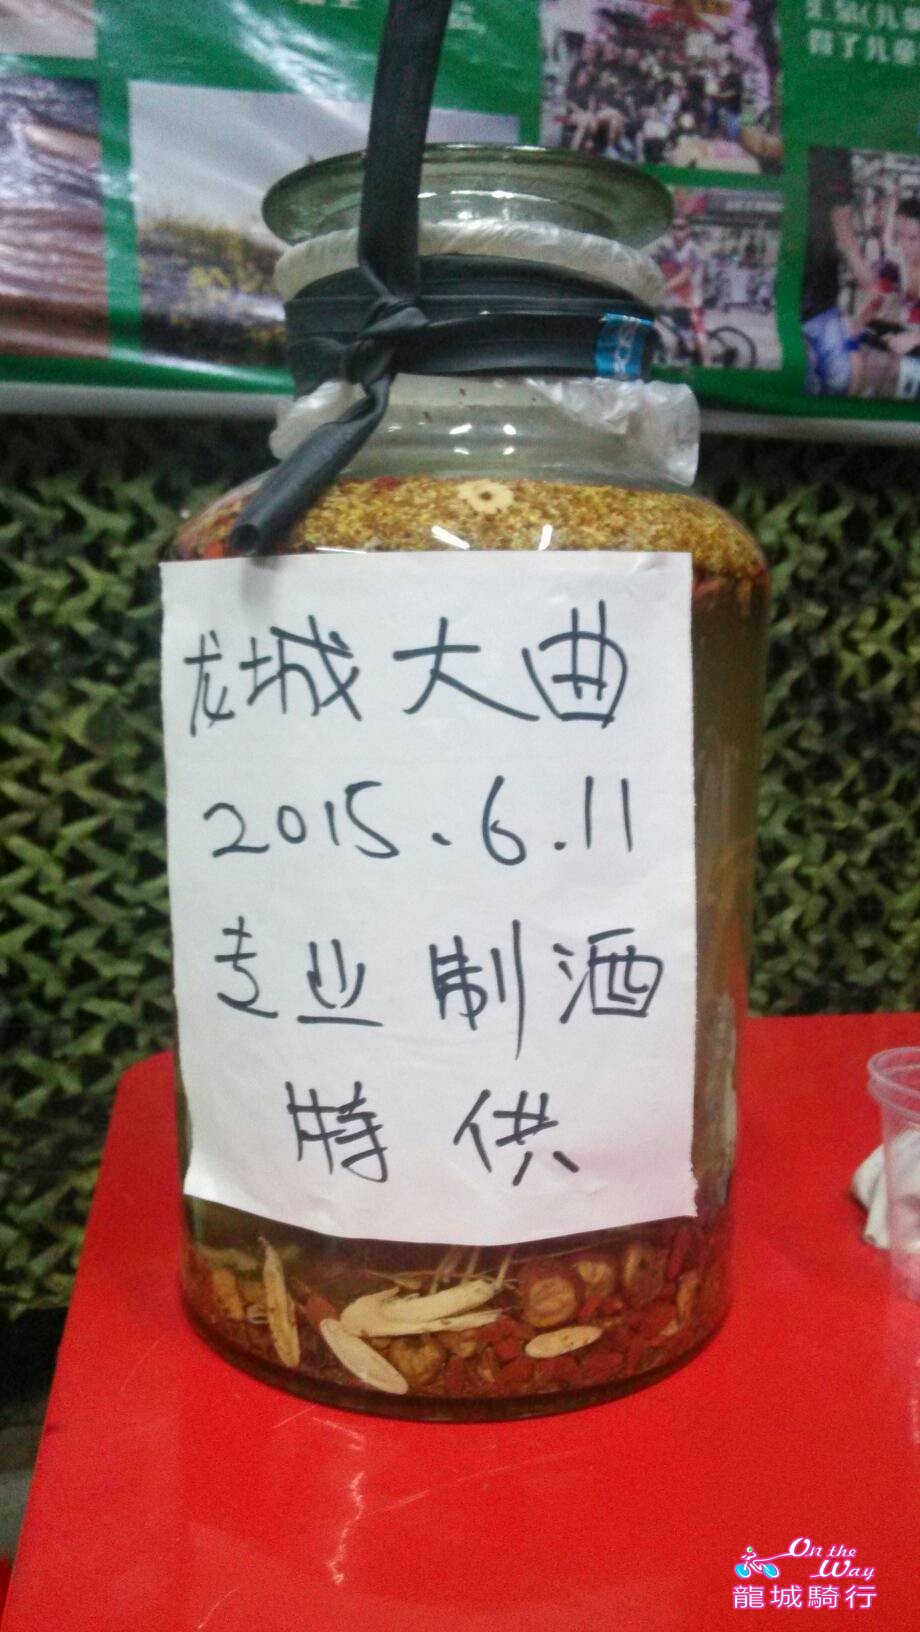 龙城大曲
2015.6.11
专业制酒
特供
On the
Way
龍城騎行